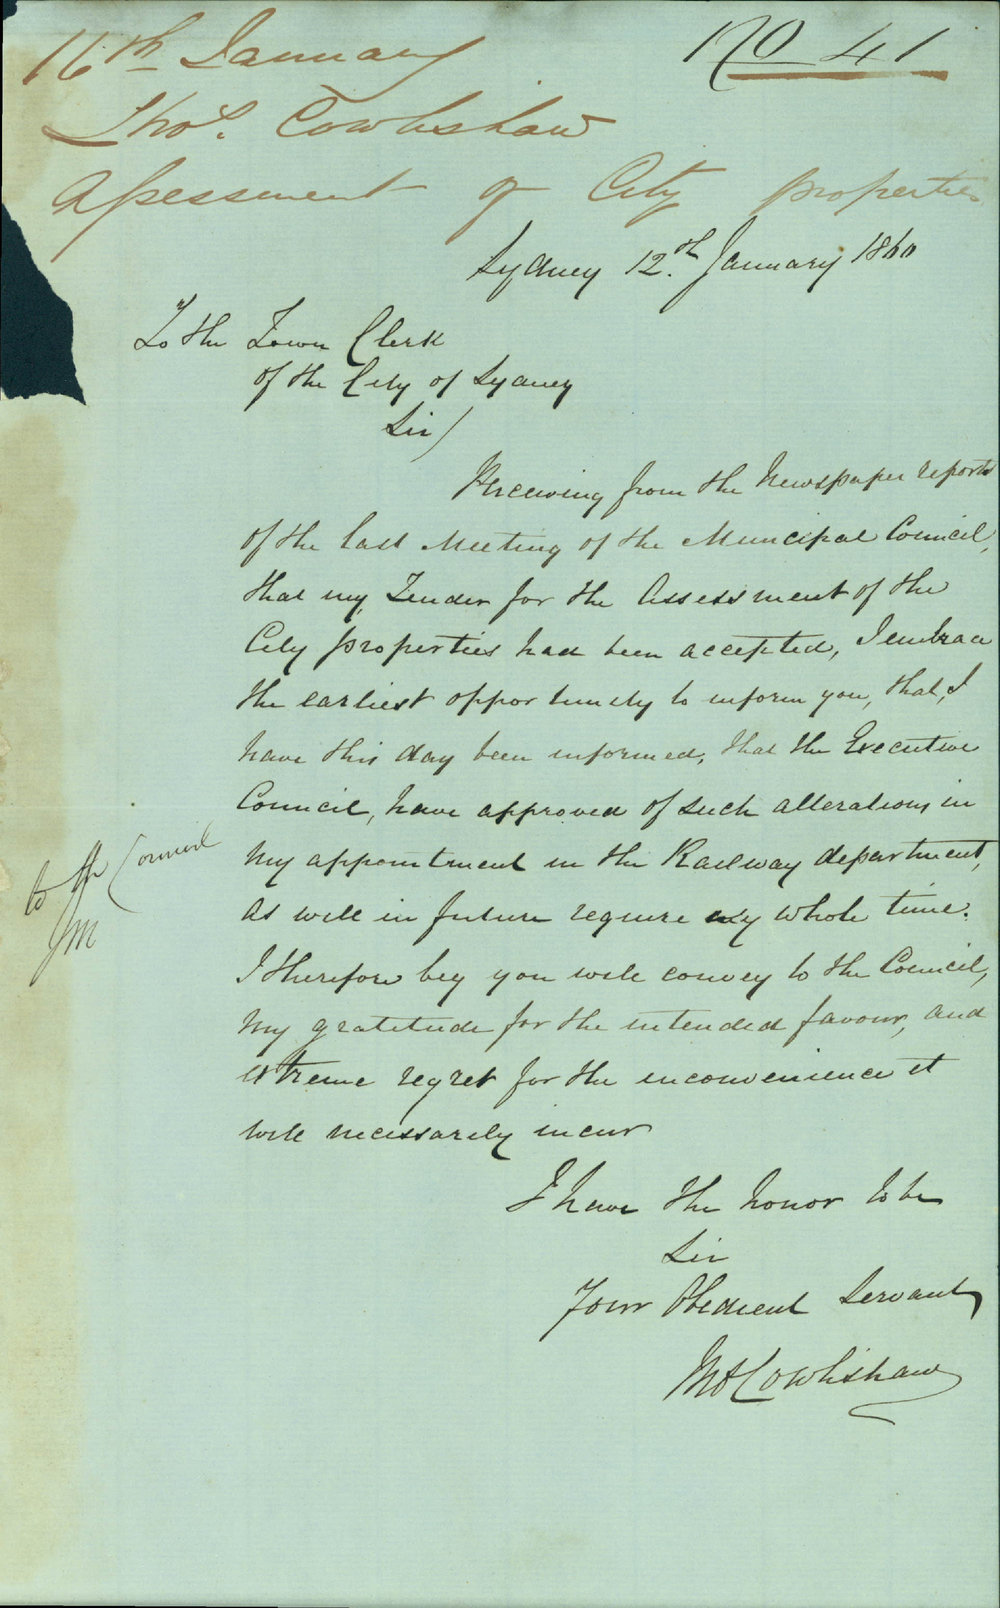 16th January
No 41
Thos. Cowlishaw
Assessment of City properties
Sydney 12.th January 1860
To the Town Clerk
of the City of Sydney
Sir/
Perceiving from the Newspaper reports
of the last Meeting of the Municipal Council,
that my Tender for the Assessment of the
City properties had been accepted, I embrace
the earliest opportunity to inform you, that, I
have this day been informed, that the Executive
Council, have approved of such alterations in
my appointment in the Railway department,
as will in future require my whole time.
I therefore beg you will convey to the Council,
my gratitude for the intended favour, and
extreme regret for the inconvenience it
will necessarily incur
I have the honor to be
Sir
Your Obedient Servant
Cowlishaw
to the Council
JM